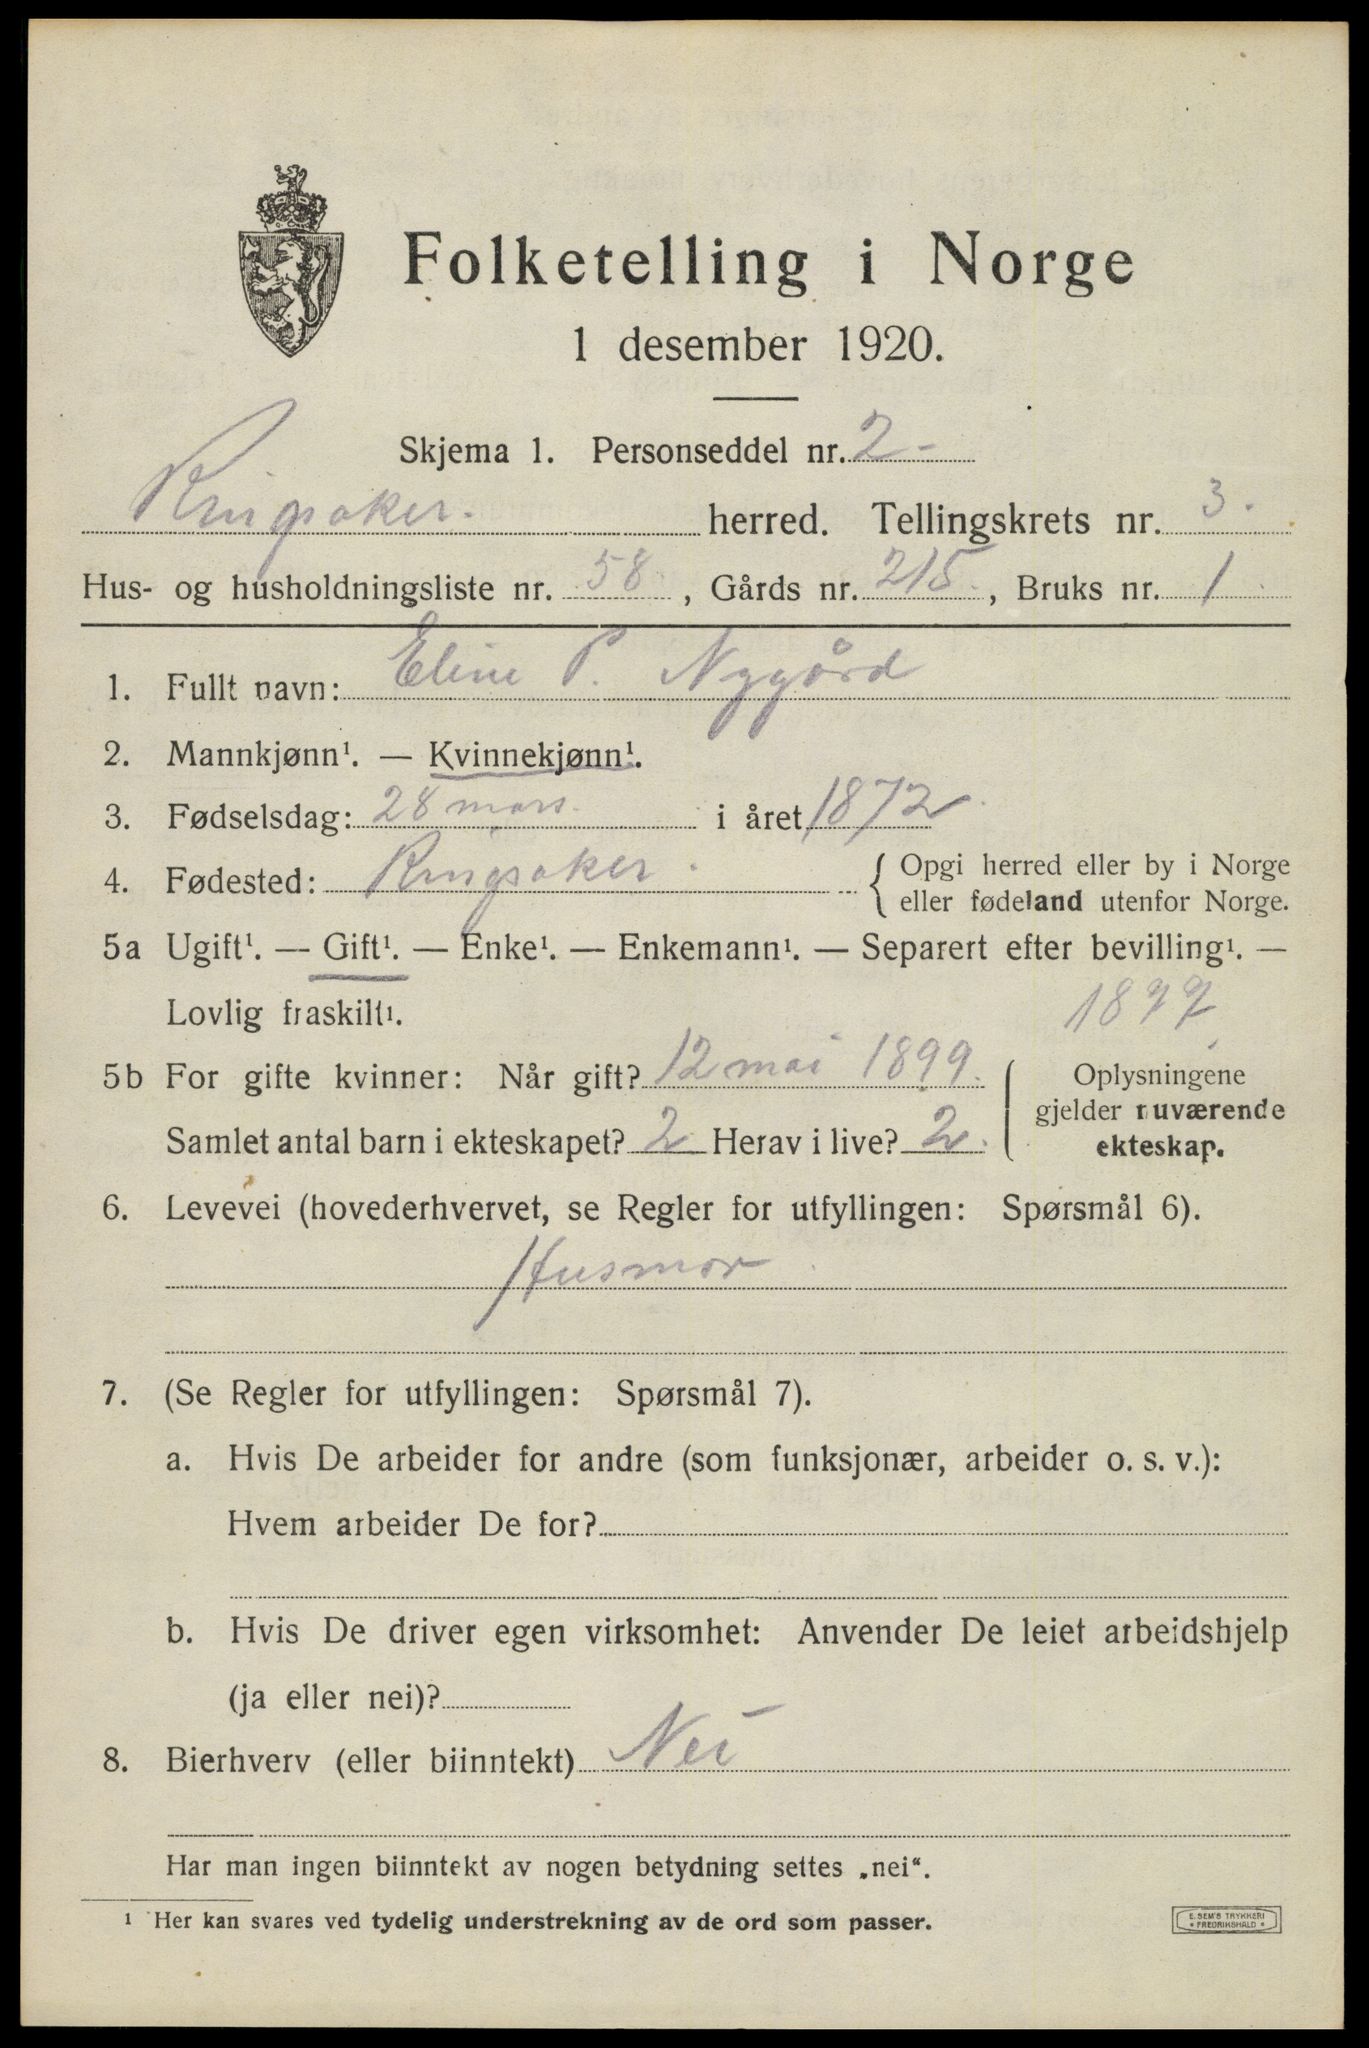 Folketelling i Norge
1 desember 1920.
Skjema 1. Personseddel nr. 2
Ringsaker. herred. Tellingskrets nr. 3.
Hus- og husholdningsliste nr. 58, Gårds nr. 215, Bruks nr. 1
1. Fullt navn: Eline P. Nygård
2. Mannkjønn¹. — Kvinnekjønn¹.
3. Fødselsdag: 28 mars i året 1872
4. Fødested: Ringsaker { Opgi herred eller by i Norge
eller fødeland utenfor Norge.
5a Ugift¹. — Gift¹. — Enke¹. — Enkemann¹. — Separert efter bevilling¹. —
Lovlig fraskilt¹.
5b For gifte kvinner: Når gift? 12 mai 1899
Samlet antal barn i ekteskapet? 2 Herav i live? 2.
Oplysningene
gjelder nuværende
ekteskap.
6. Levevei (hovederhvervet, se Regler for utfyllingen: Spørsmål 6).
Husmor
7. (Se Regler for utfyllingen: Spørsmål 7).
a. Hvis De arbeider for andre (som funksjonær, arbeider o. s. v.):
Hvem arbeider De for?
b. Hvis De driver egen virksomhet: Anvender De leiet arbeidshjelp
(ja eller nei)?
8. Bierhverv (eller biinntekt) Nei
Har man ingen biinntekt av nogen betydning settes „nei“.
¹ Her kan svares ved tydelig understrekning av de ord som passer.
E. SEM'S TRYKKERI
* FREDRIKSHALD *